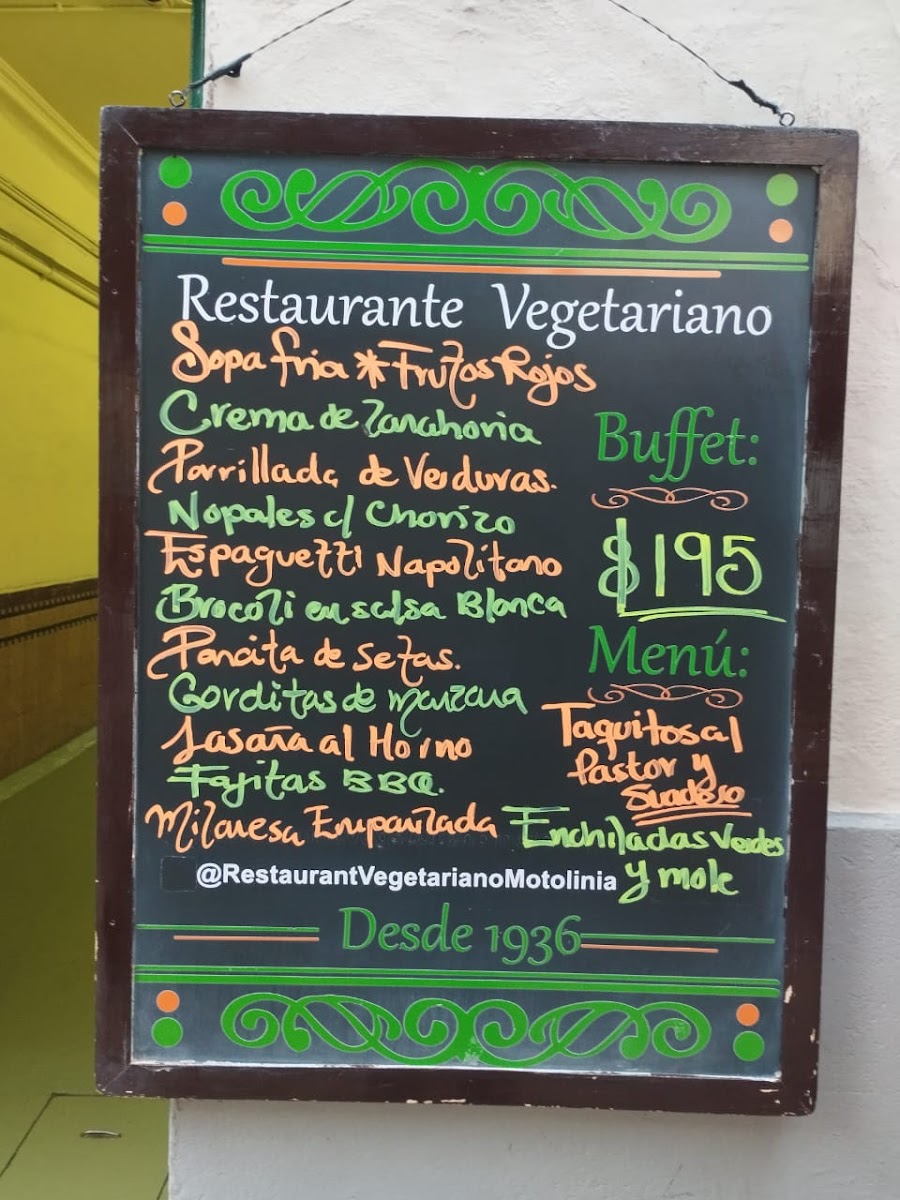 Restaurante Vegetariano
Sopa fria * Frutos Rojos
Crema de Zanahoria
Parrillada de Verduras.
Nopales c/ Chorizo
Espaguetti Napolitano
Brocoli en salsa Blanca
Pancita de setas.
Gorditas de manzana
Lasaña al Horno
Fajitas BBQ.
Milanesa Empanizada
Buffet:
$195
Menú:
Taquitos al
Pastor y
Suadero
Enchiladas Verdes
y mole
@RestaurantVegetarianoMotolinia
Desde 1936